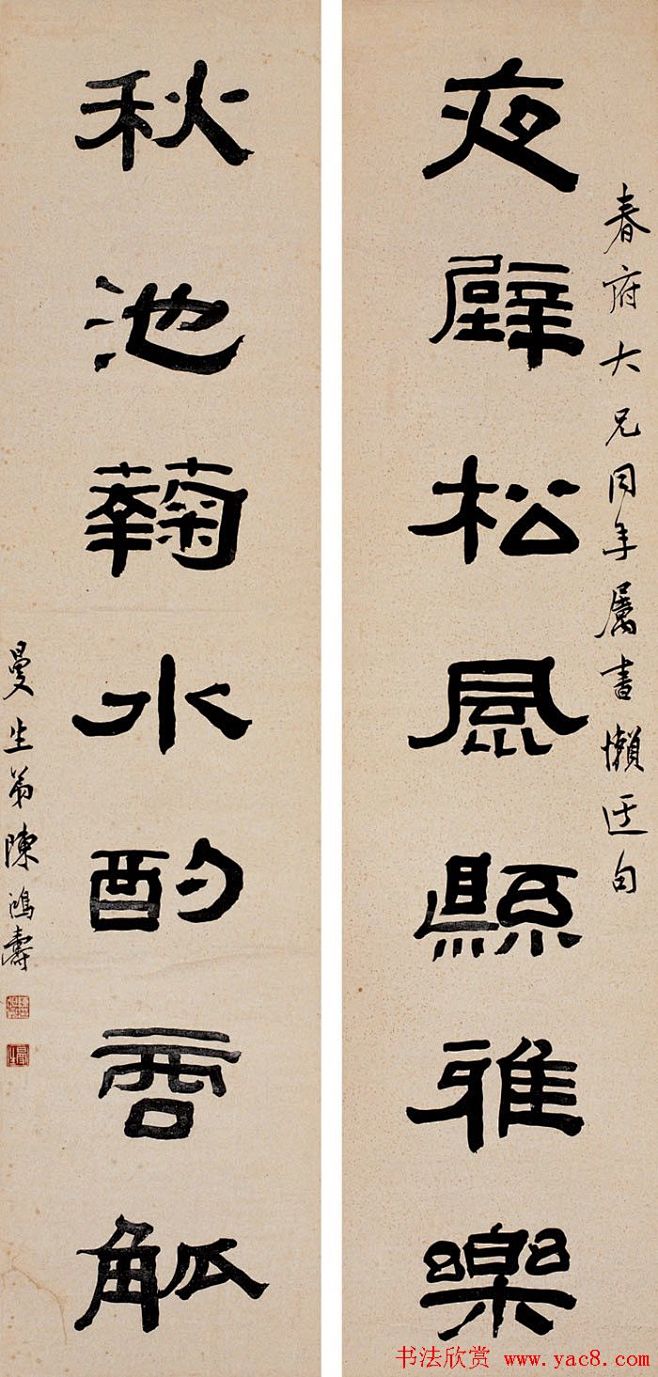 春府大兄同年屬書懶迂句
夜壁松風縣雅樂
秋池菊水酌雲觚
曼生弟陳鴻壽
书法欣赏 www.yac8.com